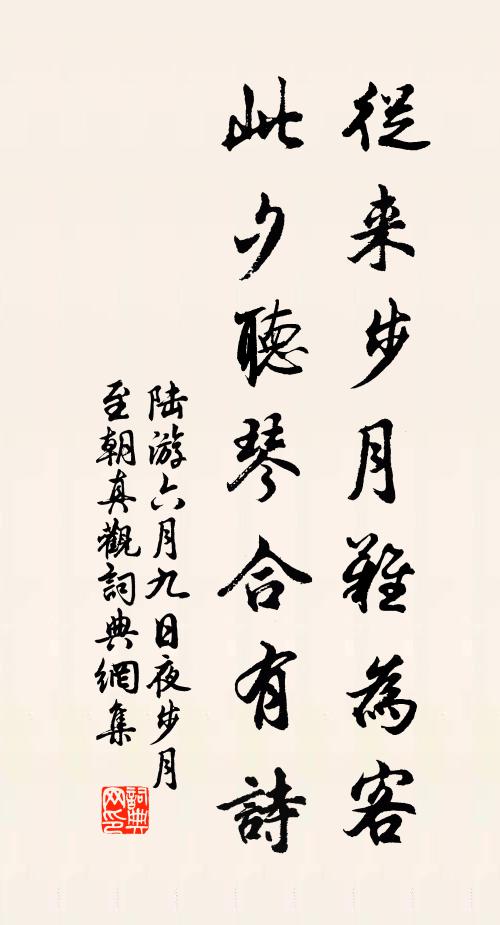 從来步月難為客
此夕聽琴合有詩
陸游六月九日夜步月
至朝真觀詞典網集
詞典网印